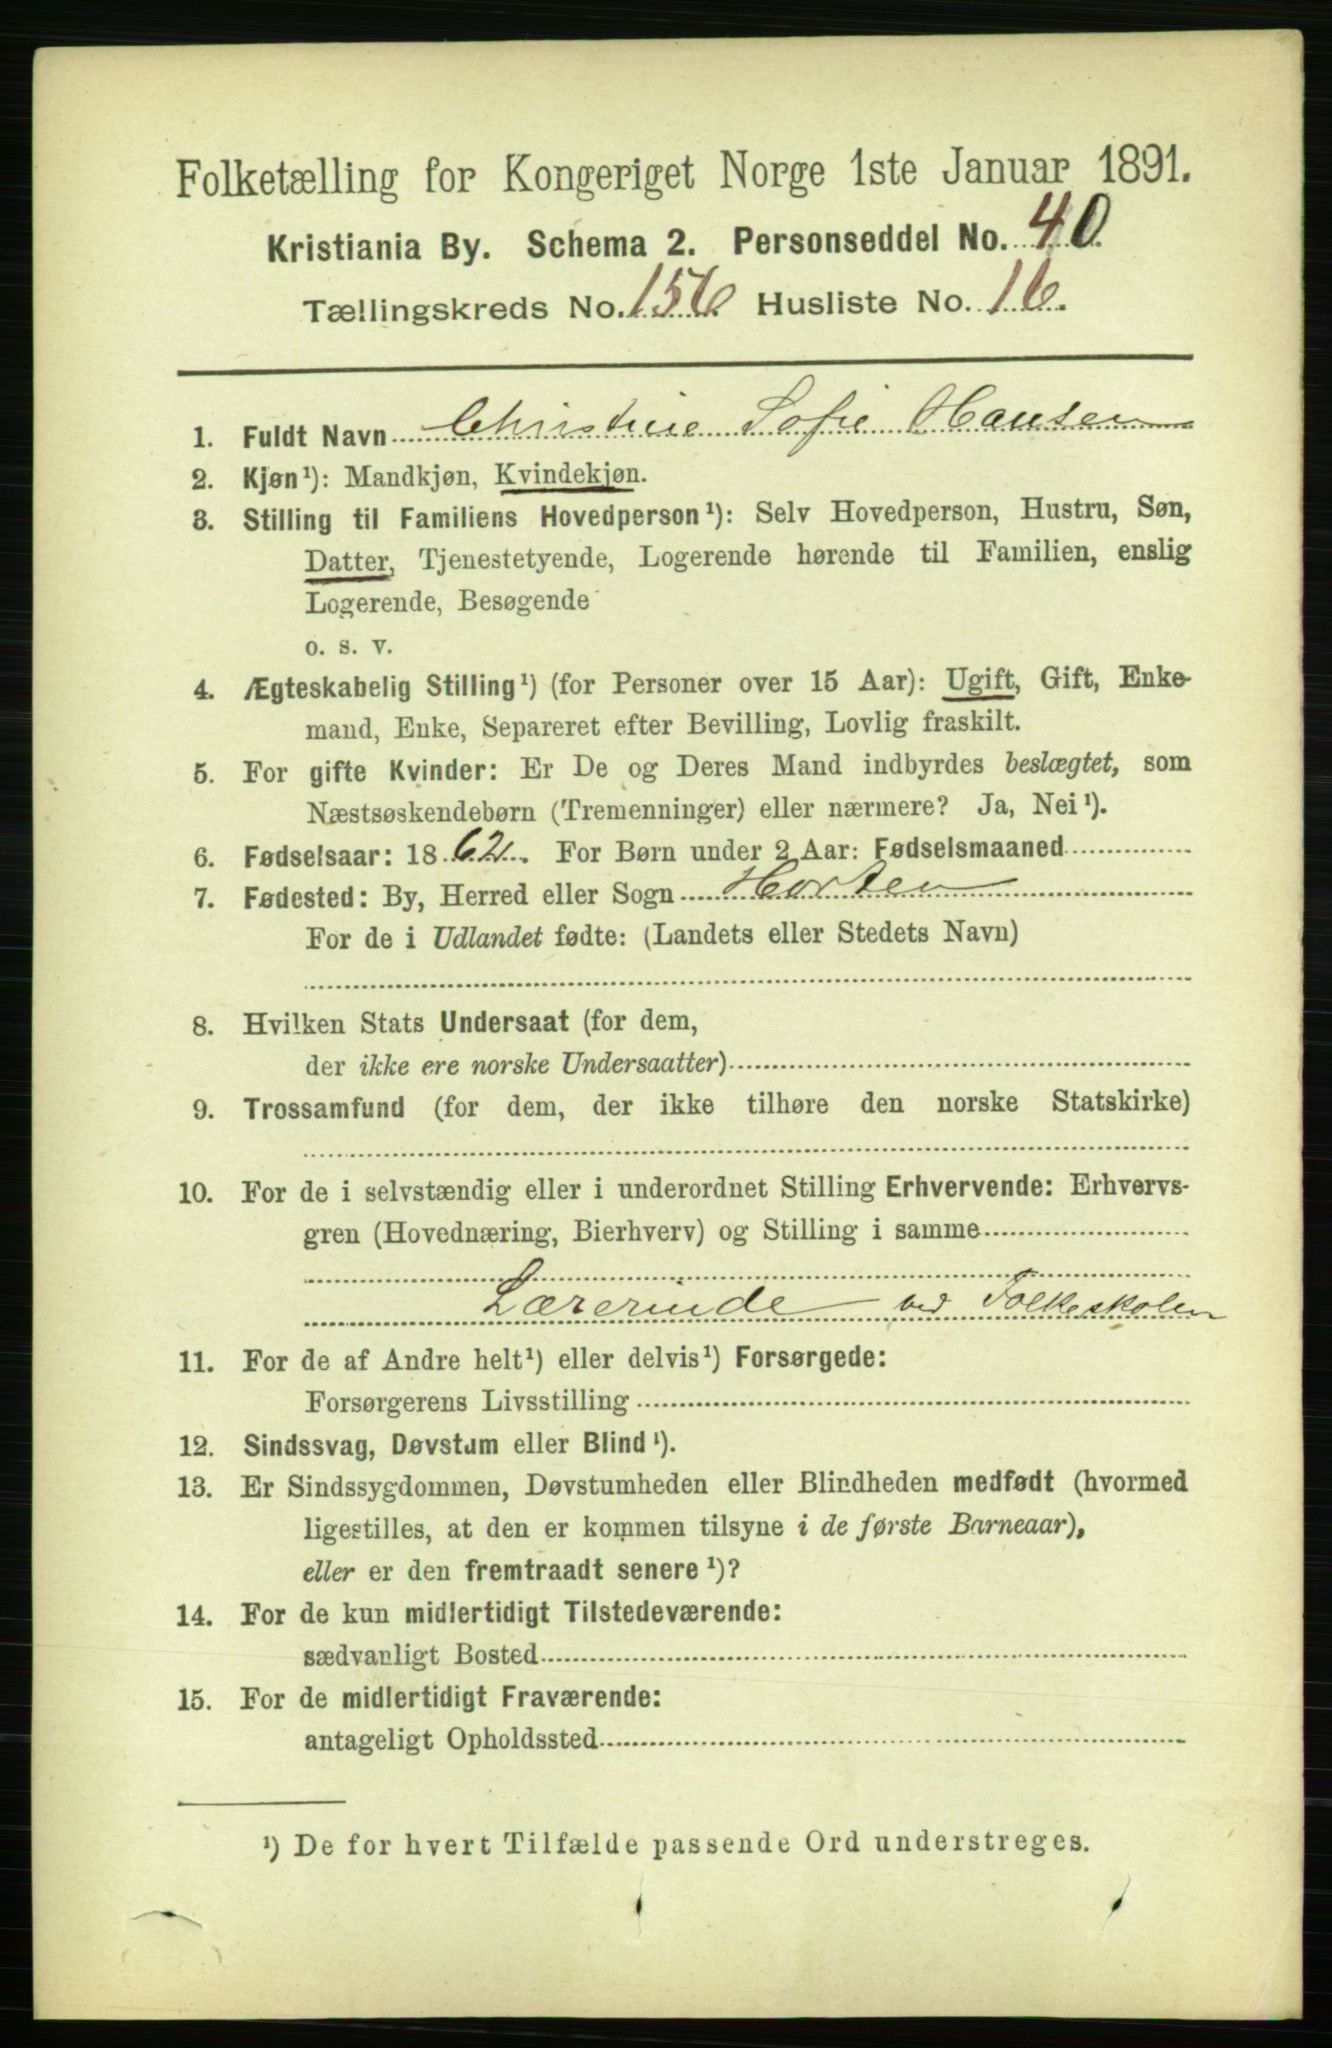 Folketælling for Kongeriget Norge 1ste Januar 1891.
Kristiania By. Schema 2. Personseddel No. 40
Tællingskreds No. 156 Husliste No. 16.
1. Fuldt Navn Christine Sofie Hansen
2. Kjøn¹): Mandkjøn, Kvindekjøn.
3. Stilling til Familiens Hovedperson¹): Selv Hovedperson, Hustru, Søn,
Datter, Tjenestetyende, Logerende hørende til Familien, enslig
Logerende, Besøgende
o. s. v.
4. Ægteskabelig Stilling¹) (for Personer over 15 Aar): Ugift, Gift, Enke-
mand, Enke, Separeret efter Bevilling, Lovlig fraskilt.
5. For gifte Kvinder: Er De og Deres Mand indbyrdes beslægtet, som
Næstsøskendebørn (Tremenninger) eller nærmere? Ja, Nei¹).
6. Fødselsaar: 1862. For Børn under 2 Aar: Fødselsmaaned
7. Fødested: By, Herred eller Sogn Horten
For de i Udlandet fødte: (Landets eller Stedets Navn)
8. Hvilken Stats Undersaat (for dem,
der ikke ere norske Undersaatter)
9. Trossamfund (for dem, der ikke tilhøre den norske Statskirke)
10. For de i selvstændig eller i underordnet Stilling Erhvervende: Erhvervs-
gren (Hovednæring, Bierhverv) og Stilling i samme
Lærerinde ved Folkeskolen
11. For de af Andre helt¹) eller delvis¹) Forsørgede:
Forsørgerens Livsstilling
12. Sindssvag, Døvstum eller Blind¹).
13. Er Sindssygdommen, Døvstumheden eller Blindheden medfødt (hvormed
ligestilles, at den er kommen tilsyne i de første Barneaar),
eller er den fremtraadt senere¹)?
14. For de kun midlertidigt Tilstedeværende:
sædvanligt Bosted
15. For de midlertidigt Fraværende:
antageligt Opholdssted
¹) De for hvert Tilfælde passende Ord understreges.